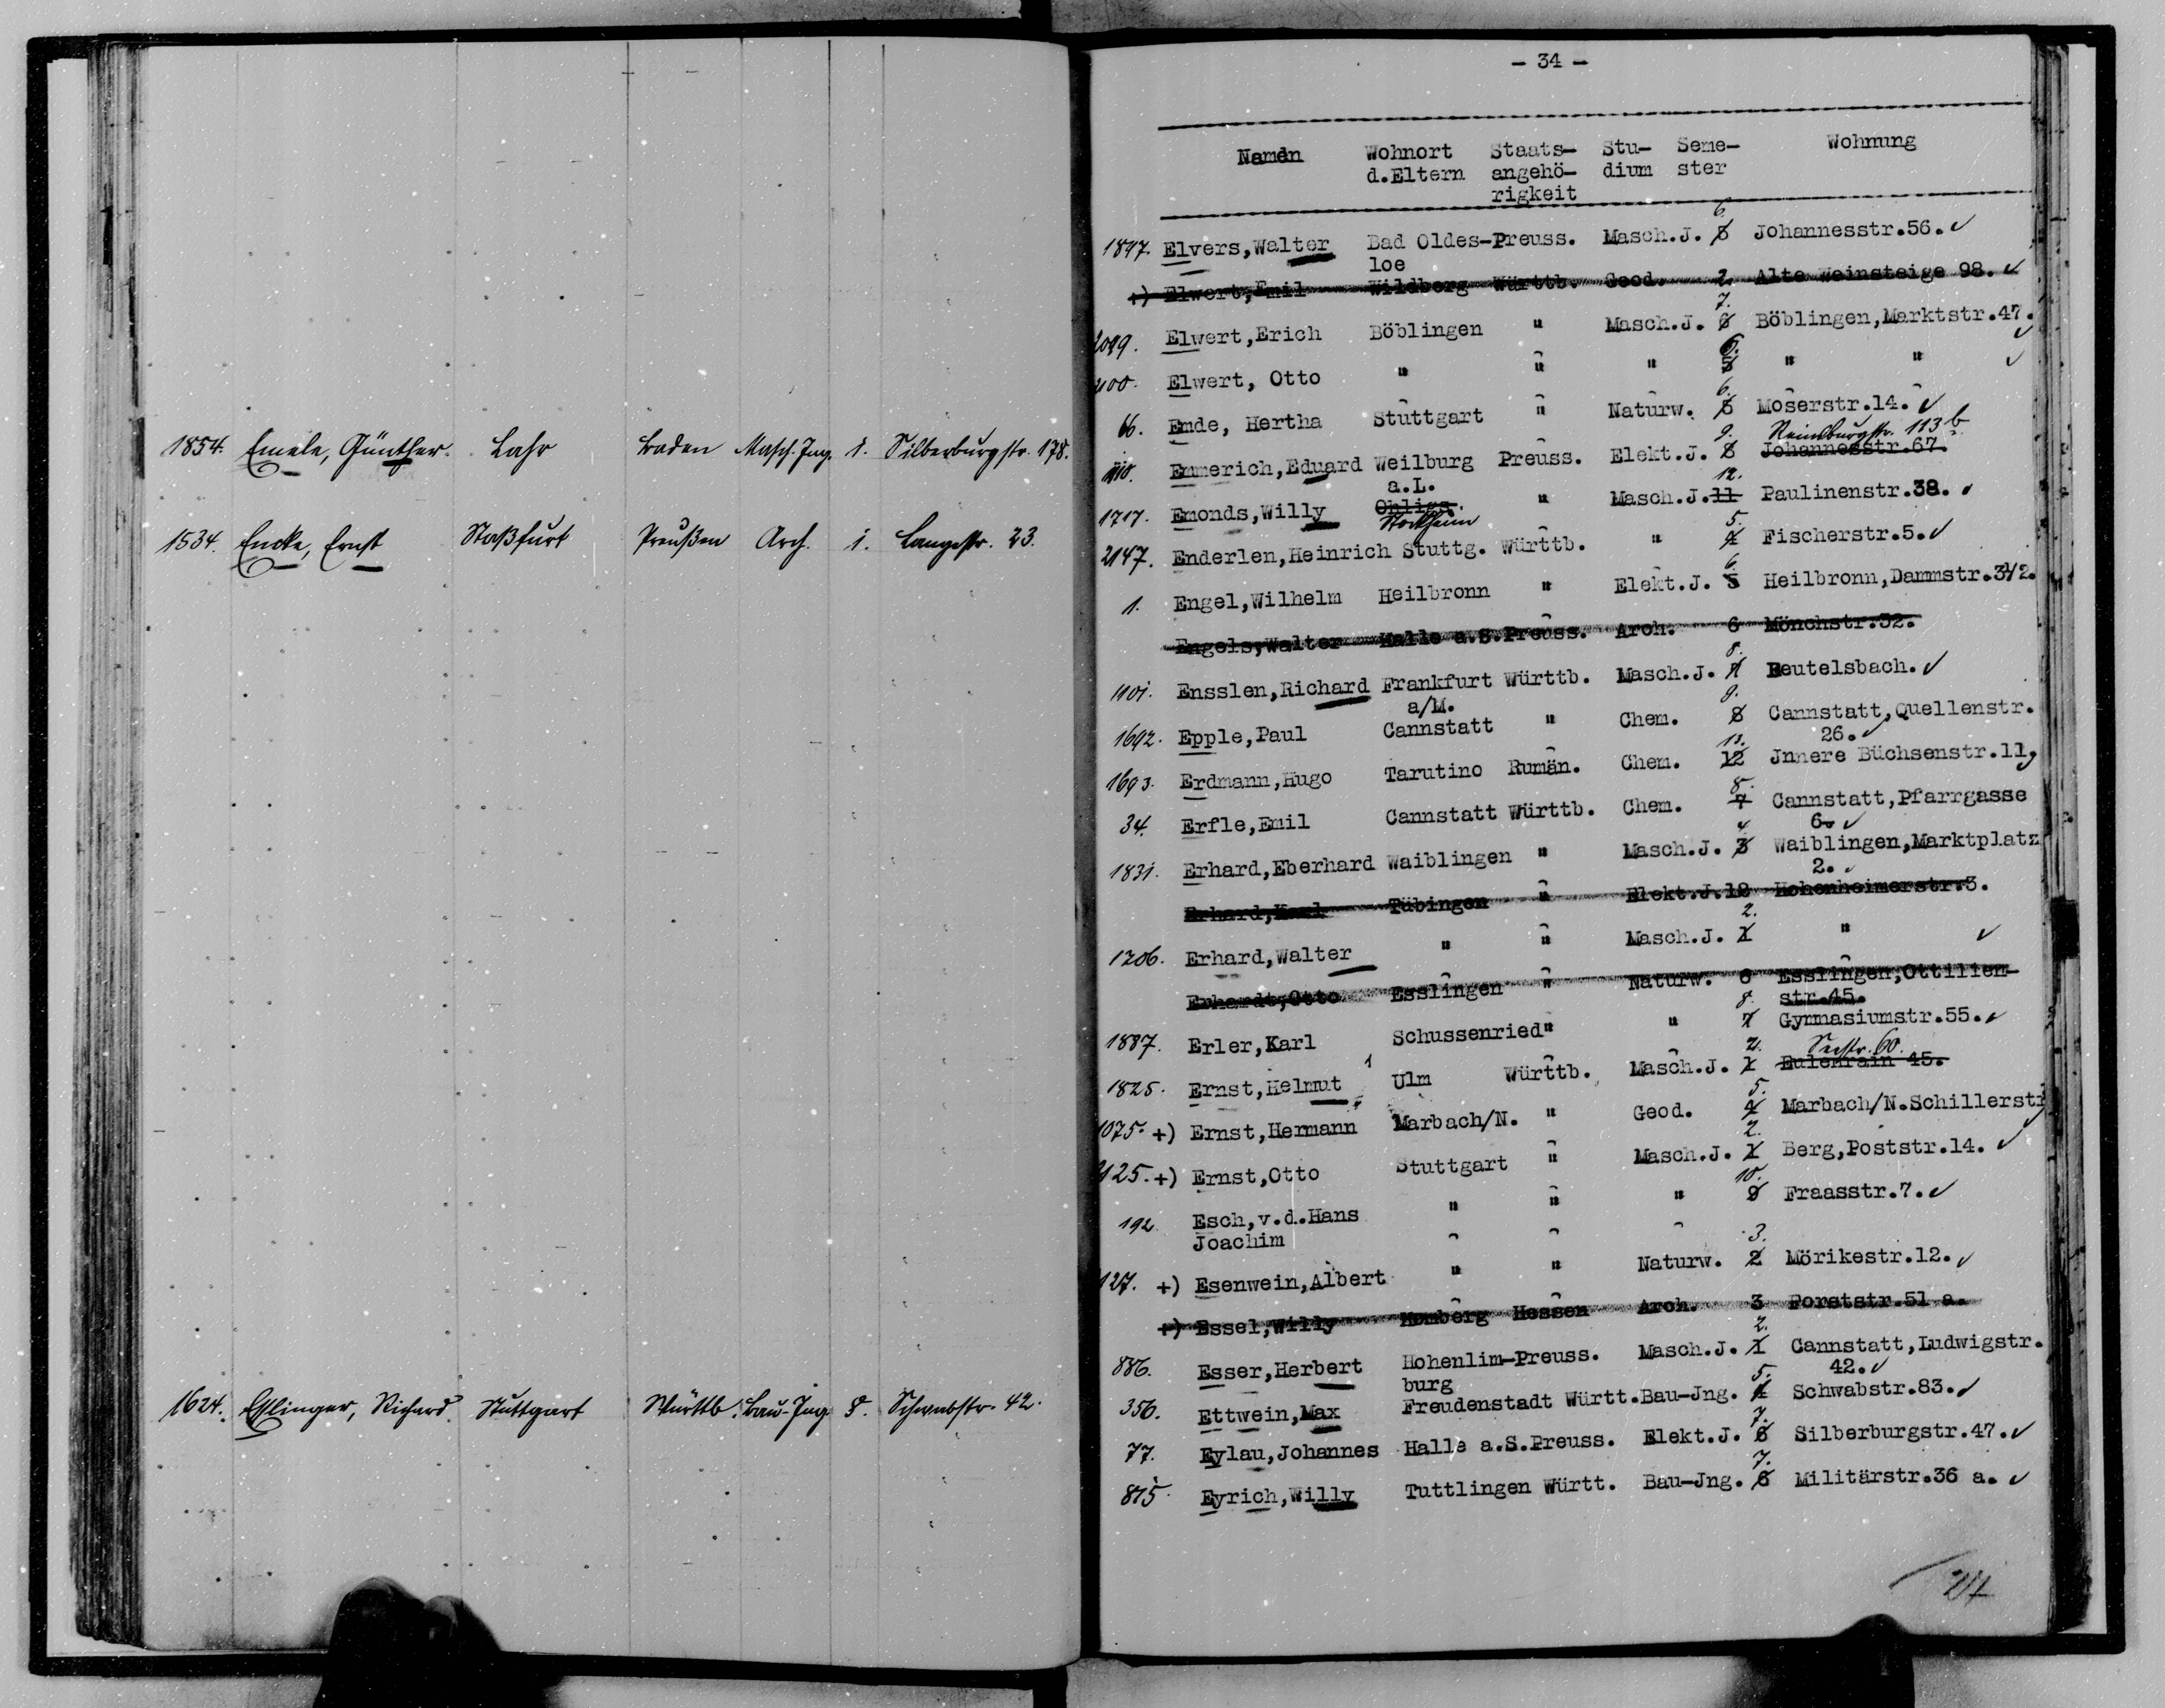 1854. Emele, Günther. Lahr Baden Masch. Ing. 1. Silberburgstr. 178.
1534. Encke, Ernst Staßfurt Preußen Arch. 1. Langestr. 23.
1624. Ettlinger, Richard. Stuttgart Württb. Bau-Ing. Schwabstr. 42.
- 34 -
Namen Wohnort Staats- Stu- Seme- Wohnung
d.Eltern angehö- dium ster
rigkeit
6.
1897. Elvers,Walter Bad Oldes-Preuss. Masch.J. 5 Johannesstr.56. ✓
loe
+) Elwert,Emil Wildberg Württb. Geod. 2 Alte Weinsteige 98. ✓
7.
2099. Elwert,Erich Böblingen " Masch.J. 6 Böblingen,Marktstr.47. ✓
6.
Elwert, Otto " " " 5 " " ✓
6.
66. Ende, Hertha Stuttgart " Naturw. 5 Moserstr.14. ✓
9. Reinsburgstr. 113 b
Emmerich,Eduard Weilburg Preuss. Elekt.J. 8 Johannesstr.67.
a.L.
12.
1717. Emonds,Willy Ohligs. " Masch.J.11 Paulinenstr.38. ✓
Stockheim
5.
2147. Enderlen,Heinrich Stuttg. Württb. " 4 Fischerstr.5. ✓
6.
1. Engel,Wilhelm Heilbronn " Elekt.J. 5 Heilbronn,Dammstr.31/2.
Engels,Walter Halle a.S.Preuss. Arch. 6 Mönchstr.32.
8.
1101. Ensslen,Richard Frankfurt Württb. Masch.J. 7 Beutelsbach. ✓
a/M.
9.
1692. Epple,Paul Cannstatt " Chem. 8 Cannstatt,Quellenstr.
26. ✓
13.
1693. Erdmann,Hugo Tarutino Rumän. Chem. 12 Jnnere Büchsenstr.11,
8.
34. Erfle,Emil Cannstatt Württb. Chem. 7 Cannstatt,Pfarrgasse
6. ✓
4
1831. Erhard,Eberhard Waiblingen " Masch.J. 3 Waiblingen,Marktplatz
2. ✓
Erhard,Karl Tübingen " Elekt.J.12 Hohenheimerstr.3.
2.
1206. Erhard,Walter " " Masch.J. 1 " ✓
Erhardt,Otto Esslingen " Naturw. 6 Esslingen,Ottilien-
str.45.
8.
1887. Erler,Karl Schussenried" " 7 Gymnasiumstr.55. ✓
2. Seestr. 60.
1825. Ernst,Helmut Ulm Württb. Masch.J. 1 Eulenrain 45.
5.
1075. +) Ernst,Hermann Marbach/N. " Geod. 4 Marbach/N.Schillerstr
2.
2125. +) Ernst,Otto Stuttgart " Masch.J. 1 Berg,Poststr.14. ✓
10.
192. Esch,v.d.Hans " " " 9 Fraasstr.7. ✓
Joachim
3.
127. +) Esenwein,Albert " " Naturw. 2 Mörikestr.12. ✓
+) Essel,Willy Homberg Hessen Arch. 3 Forststr.51 a.
2.
886. Esser,Herbert Hohenlim-Preuss. Masch.J. 1 Cannstatt,Ludwigstr.
burg 42. ✓
5.
356. Ettwein,Max Freudenstadt Württ.Bau-Jng. 4 Schwabstr.83. ✓
7.
77. Eylau,Johannes Halle a.S.Preuss. Elekt.J. 6 Silberburgstr.47. ✓
7.
815. Eyrich,Willy Tuttlingen Württ. Bau-Jng. 6 Militärstr.36 a. ✓
27